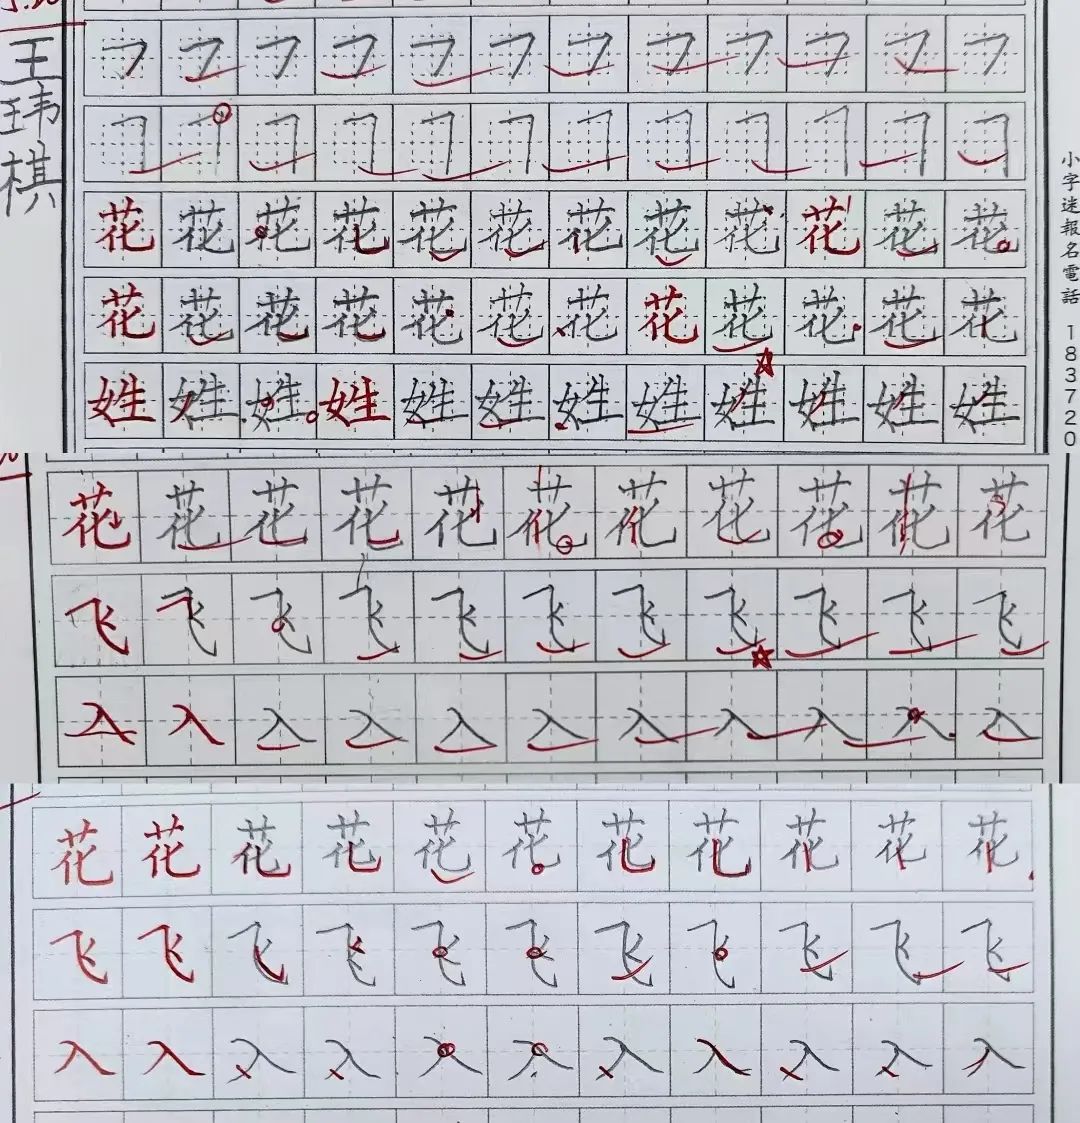 王玮棋
花花花花花花花花花花花花
花花花花花花花花花花花花
姓姓姓姓姓姓姓姓姓姓姓姓
小字迷報名電話 1837720
花花花花花花花花花花花
飞飞飞飞飞飞飞飞飞飞飞
入入入入入入入入入入入
花花花花花花花花花花花
飞飞飞飞飞飞飞飞飞飞飞
入入入入入入入入入入入